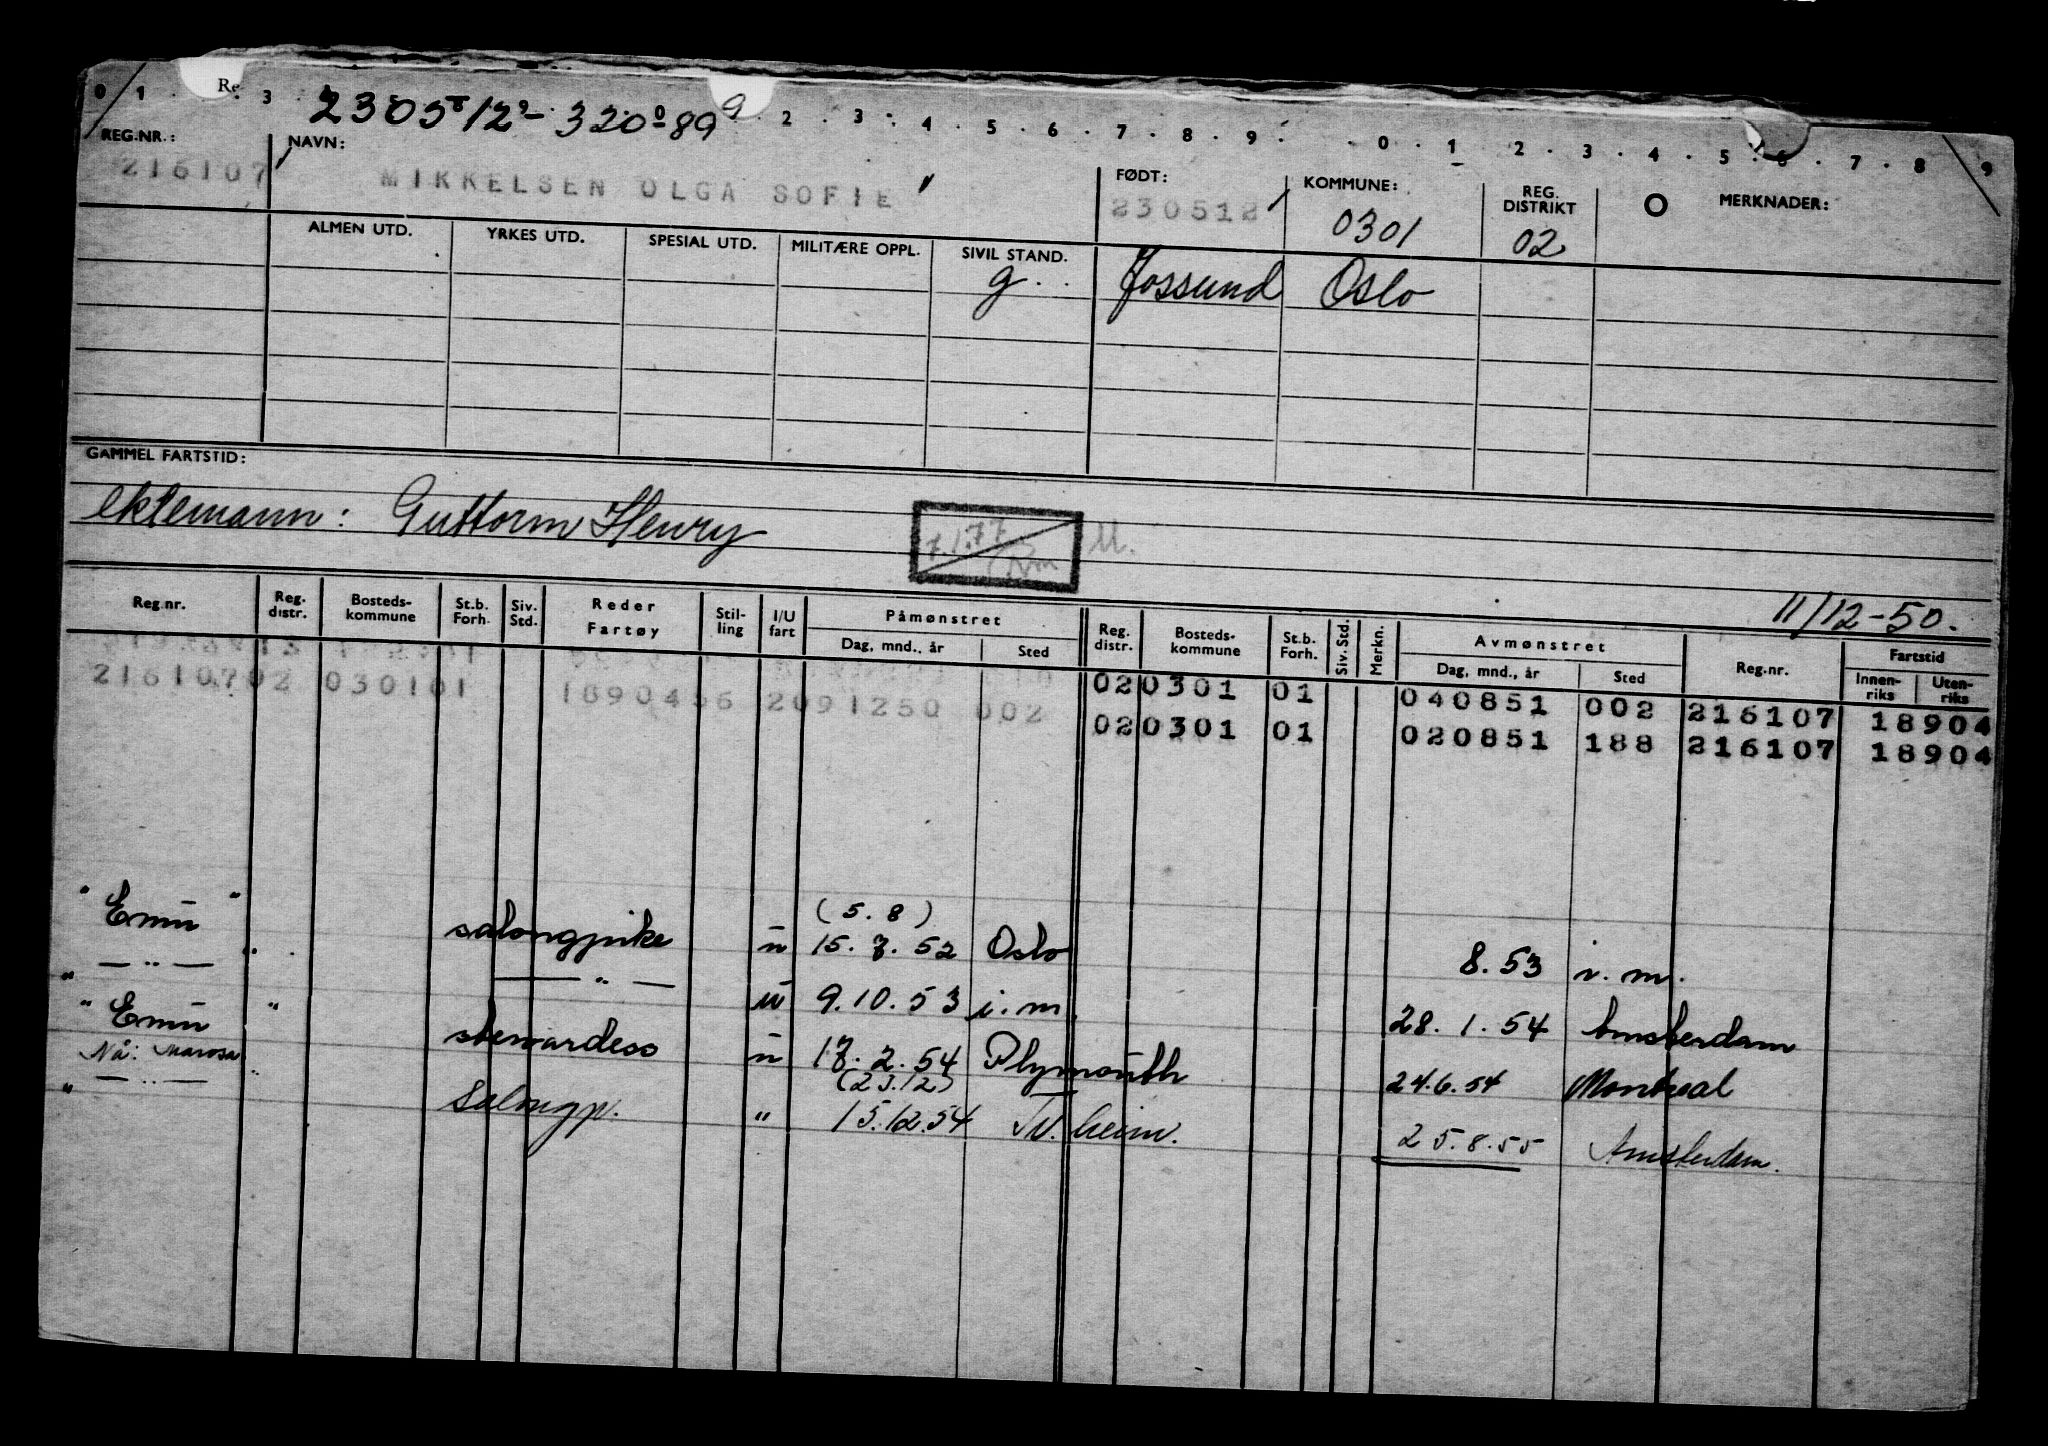 0 1 . Re . 3 . 2 . 3 . 4 . 5 . 6 . 7 . 8 . 9 . . 0 . 1 . 2 . 3 . 4 . 5 . 6 . 7 . 8 . 9
230512 - 32089
REG.NR.: NAVN: FØDT: KOMMUNE: REG. DISTRIKT O MERKNADER:
216107 MIKKELSEN OLGA SOFIE 230512 0301 02
ALMEN UTD. YRKES UTD. SPESIAL UTD. MILITÆRE OPPL. SIVIL STAND.
g. Jossund Oslo
GAMMEL FARTSTID:
ektemann: Guttorm Henry
7.1.77 M.
11/12-50.
Reg.nr. Reg. distr. Bosteds- kommune St.b. Forh. Siv. Std. Reder Fartøy Stil- ling I/U fart Påmønstret Dag, mnd., år Sted Reg. distr. Bosteds- kommune St.b. Forh. Siv. Std. Merkn. Avmønstret Dag, mnd., år Sted Reg.nr. Fartstid Innen- riks Uten- riks
216107 02 0301 01 1890456 2091250 002 02 0301 01 040851 002 216107 18904
02 0301 01 020851 188 216107 18904
(5.8)
"Emu" salongpike u 15.7.52 Oslo 8.53 i.m.
" — " — " — " — u 9.10.53 i.m. 28.1.54 Amsterdam
"Emu" stewardess u 17.2.54 Plymouth 24.6.54 Montreal
Nå: Marosa (23.12)
" — " — " Salongp. " 15.12.54 Tr.heim. 25.8.55 Amsterdam.